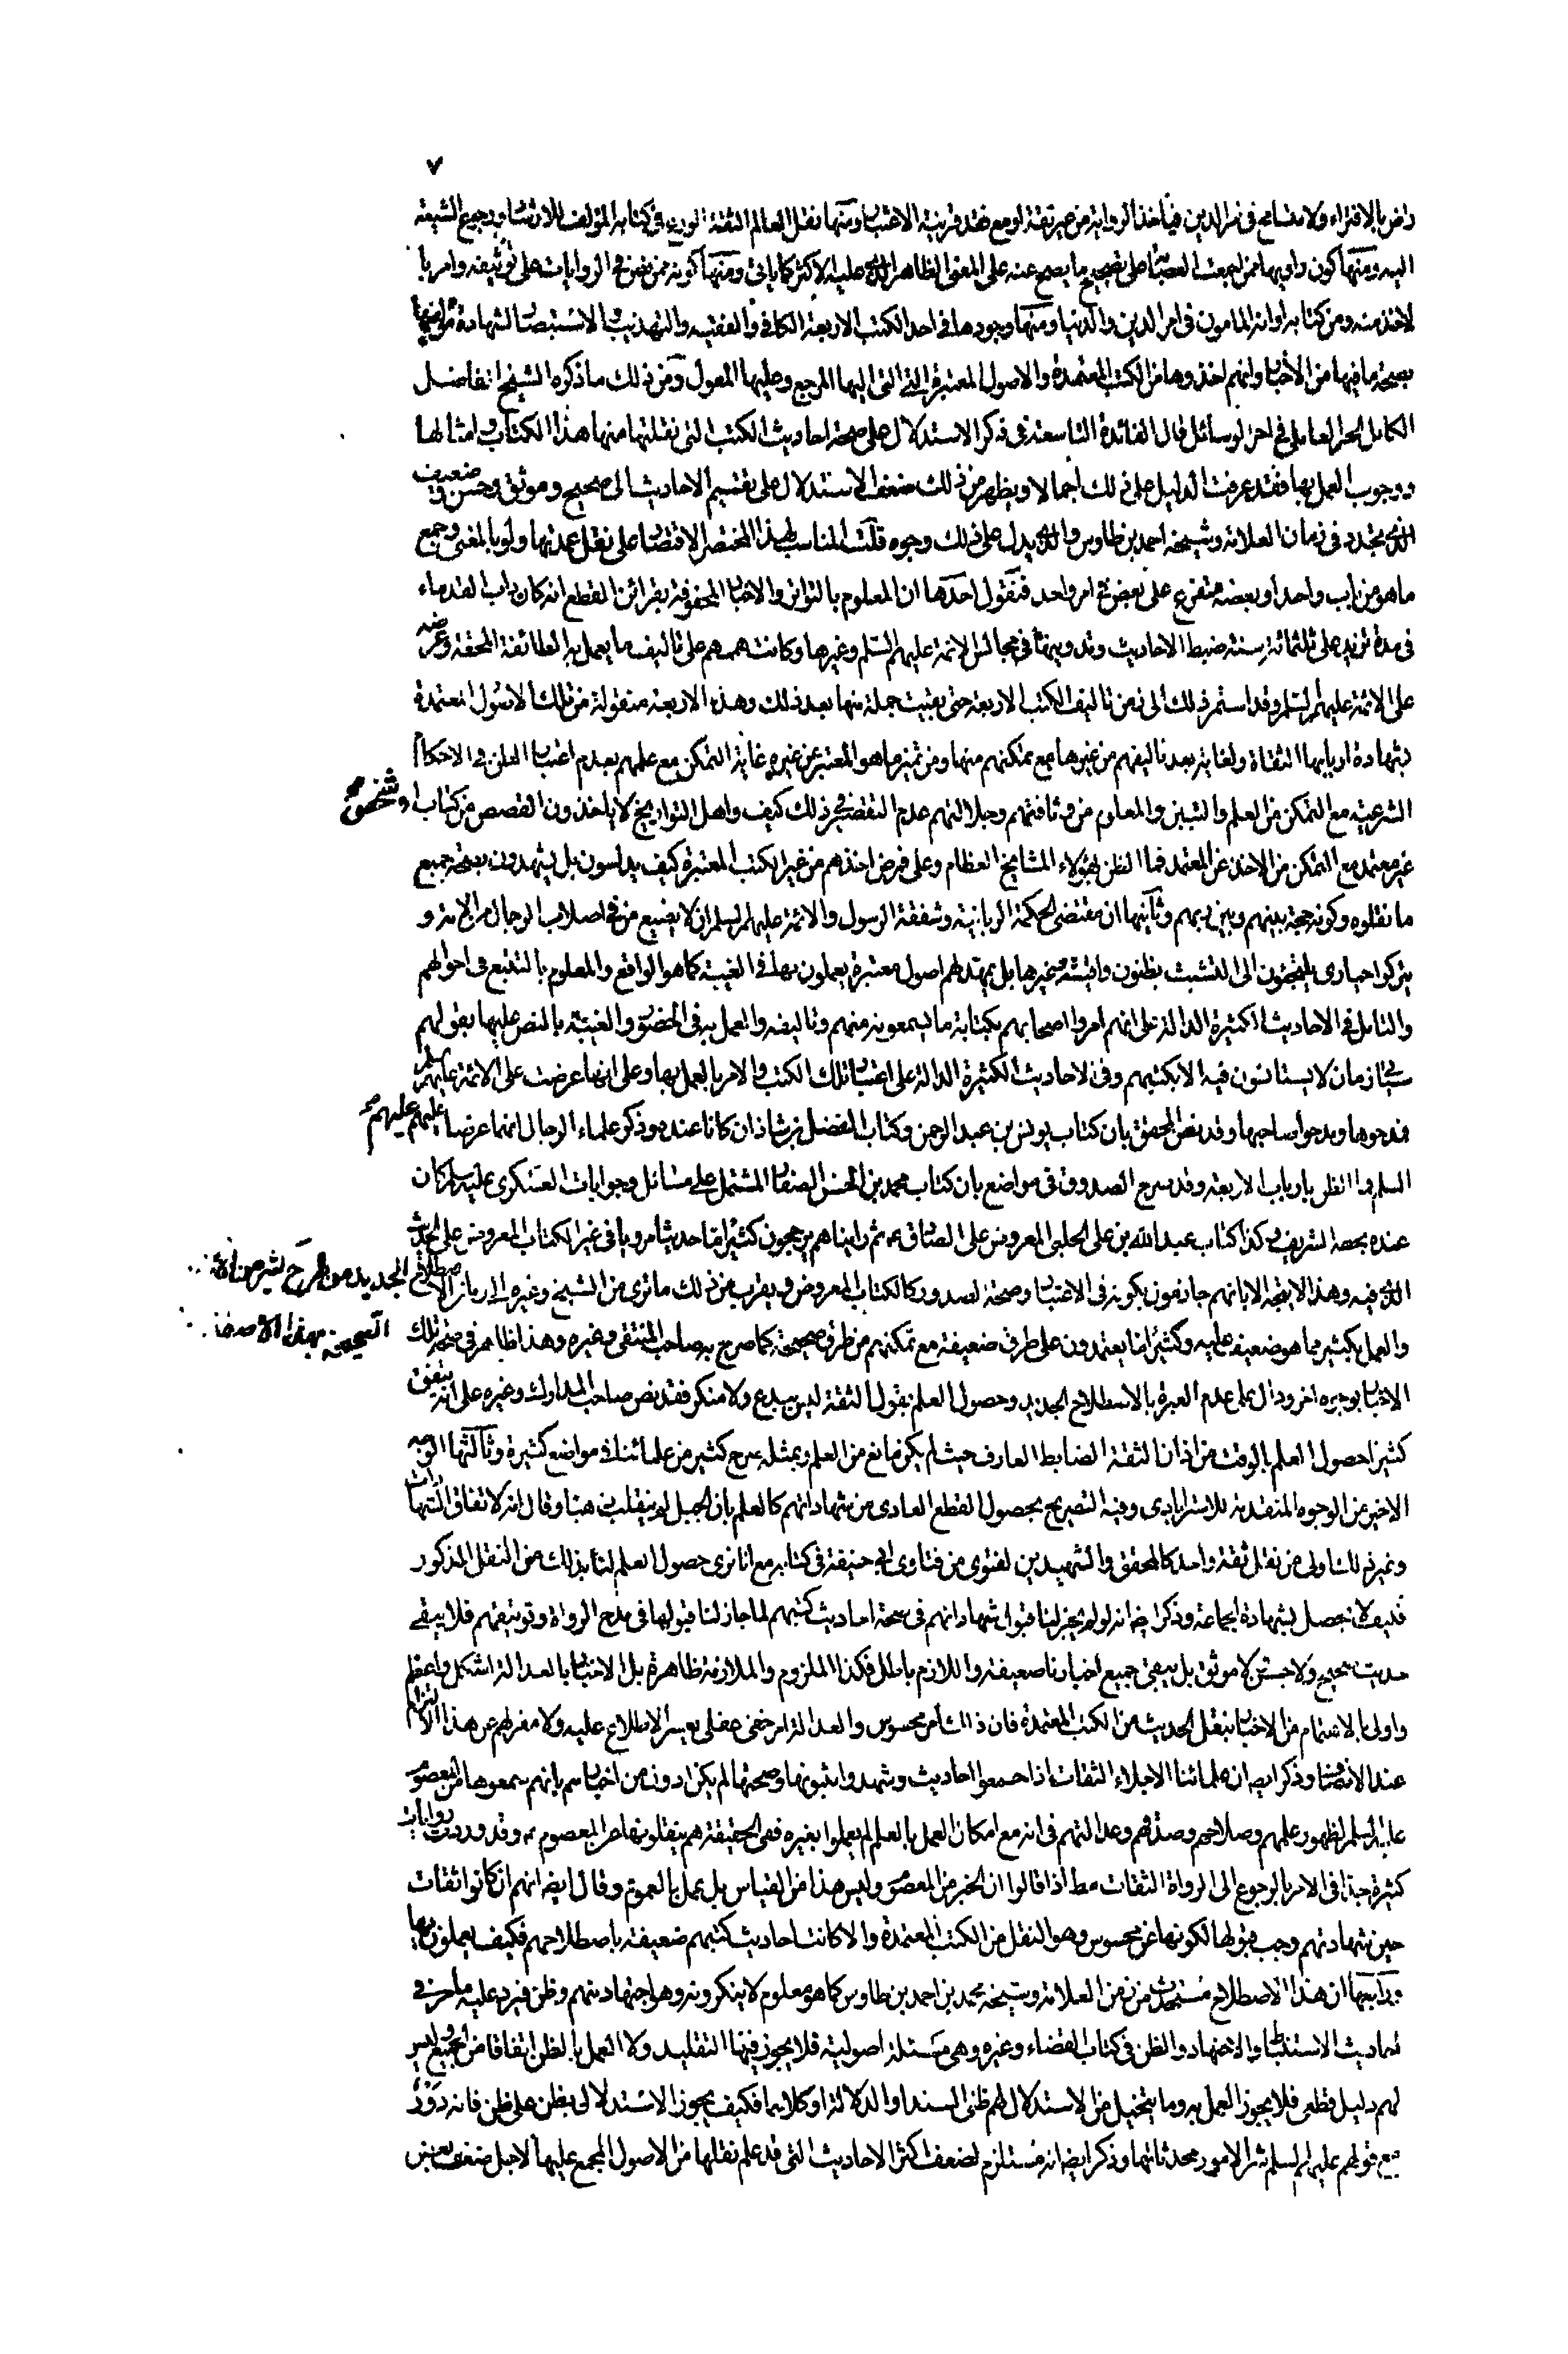 ٧
راض بالافتراء ولا متسامح في امر الدين فياخذ الرواية من غير ثقة لو مع فقد قرينة الاعتبار ومنها نقل العالم الثقة الورع في كتابه المؤلف للارشاد ورجوع الشيعة
اليه ومنها كون راويها ممن اجمعت العصابة على تصحيح ما يصح عنه على المعنى الظاهر الذي عليه الاكثر كما ياتي ومنها كونه ممن نص في الروايات على توثيقه وامر با
لاخذ منه ومن كتابه او انه المامون في امر الدين والدنيا ومنها وجودها في احد الكتب الاربعة الكافي والفقيه والتهذيب والاستبصار لشهادة
بصحة ما فيها من الأخبار وانهم اخذوها من الكتب المعتمدة والاصول المعتبرة التي اليها المرجع وعليها المعول ومن ذلك ما ذكره الشيخ الفاضل
الكامل الحر العاملي في اخر الوسائل قال الفائدة التاسعة في ذكر الاستدلال على صحة احاديث الكتب التي نقلتها منها هذا الكتاب وامثالها
ووجوب العمل بها فقد عرفت الدليل على ذلك اجمالا ويظهر من ذلك ضعف الاستدلال على تقسيم الاحاديث الى صحيح وموثق وحسن وضعيف
الذي تجدد في زمان العلامة وشيخه احمد بن طاوس والذي يدل على ذلك وجوه قلت المناسب لهذا المختصر الاقتصار على نقل عمدتها ولو بالمعنى وجمع
ما هو من باب واحد او بعضه متفرع على بعض في امر واحد فنقول احدها ان المعلوم بالتواتر والاخبار المحفوفة بقرائن القطع انه كان داب القدماء
في مدة تزيد على ثلثمائة سنة ضبط الاحاديث وتدوينها في مجالس الائمة عليهم السلم وغيرها وكانت هممهم على تاليف ما يعمل به الطائفة المحقة وعرضه
على الائمة عليهم السلم وقد استمر ذلك الى زمن تاليف الكتب الاربعة حتى بقيت جملة منها بعد ذلك وهذه الاربعة منقولة من تلك الاصول المعتمدة
بشهادة اربابها الثقاة ولغاية بعد تاليفهم من غيرها مع تمكنهم منها ومن تميز ما هو المعتبر من غيره غاية التمكن مع علمهم بعدم اعتبار الظن في الاحكام
الشرعية مع التمكن من العلم والتبين والمعلوم من وثاقتهم وجلالتهم عدم التقصير في ذلك كيف واهل التواريخ لا ياخذون القصص من كتاب او شخص
غير معتمد مع التمكن من الاخذ عن المعتمد فما الظن بهؤلاء المشايخ العظام وعلى فرض اخذهم من غير الكتب المعتبرة كيف يدلسون بل يشهدون بصحة جميع
ما نقلوه وكونه حجة بينهم وبين ربهم وثانيها ان مقتضى الحكمة الربانية وشفقة الرسول والائمة عليهم السلم ان لا يضيع من في اصلاب الرجال من الامة و
يتركوا حيارى يلتجئون الى التشبث بظنون واقيسة وغيرها بل يمهد لهم اصول معتبرة يعملون بها في الغيبة كما هو الواقع والمعلوم بالتتبع في احوالهم
والتامل في الاحاديث الكثيرة الدالة على انهم امروا اصحابهم بكتابة ما يسمعونه منهم وتاليفه والعمل به في الحضور والغيبة بالنص عليها بقولهم
سياتي زمان لا يستانسون فيه الا بكتبهم وفي الاحاديث الكثيرة الدالة على اعتبار تلك الكتب والامر بالعمل بها وعلى انها عرضت على الائمة عليهم السلم
فمدحوها ومدحوا صاحبها وقد نص المحقق بان كتاب يونس بن عبد الرحمن وكتاب الفضل بن شاذان كانا عنده وذكر علماء الرجال انهما عرضا عليهم عليهم
السلم فما الظن بارباب الاربعة وقد صرح الصدوق في مواضع بان كتاب محمد بن الحسن الصفار المشتمل على مسائل وجوابات العسكري عليه السلم كان
عنده بخطه الشريف وكذا كتاب عبيد الله بن علي الحلبي المعروض على الصادق ع ثم راينا هم يرجحون كثيرا ما حديثا مرويا في غير الكتاب المعروض على الحديث
الذي فيه وهذا لا يتجه الا بانهم جازمون بكونه في الاعتبار وصحة الصدور كالكتاب المعروض ويقرب من ذلك ما ترى من الشيخ وغيره الى زمان الاصطلاح الجديد من طرح كثير من
والعمل بكثير مما هو ضعيف عليه وكثيرا ما يعتمدون على طرق ضعيفة مع تمكنهم من طرق صحيحة كما صرح به صاحب المنتقى وغيره وهذا ظاهر في صحة تلك
الاخبار بوجوه اخر ودال على عدم العبرة بالاصطلاح الجديد وحصول العلم بقول الثقة ليس ببدع ولا منكر فقد نص صاحب المدارك وغيره على انه يتفق
كثيرا حصول العلم بالوقت من اذان الثقة الضابط العارف حيث لم يكن مانع من العلم وبمثله صرح كثير من علمائنا في مواضع كثيرة وثالثها الوجه
الاخير من الوجوه المتقدمة للاسترابادي وفيه التصريح بحصول القطع العادي من شهاداتهم كالعلم بان الجبل لم ينقلب ذهبا وقال انه لا تفاق الشهادات
وغير ذلك اولى من نقل ثقة واحد كالمحقق والشهيدين لفتوى من فتاوى ابي حنيفة في كتابه مع انا نرى حصول العلم لنا بذلك من النقل المذكور
فكيف لا يحصل بشهادة الجماعة وذكر ايضا انه لو لم يجز لنا قبول شهاداتهم في صحة احاديث كتبهم لما جاز لنا قبولها في مدح الرواة وتوثيقهم فلا يبقى
حديث صحيح ولا حسن ولا موثق بل يبقى جميع اخبارنا ضعيفة واللازم باطل فكذا الملزوم والملازمة ظاهرة بل الاخبار بالعدالة اشكل واعظم
واولى بالاهتمام من الاخبار بنقل الحديث من الكتب المعتمدة فان ذلك امر محسوس والعدالة امر خفي عقلي يعسر الاطلاع عليه ولا مفر لهم عن هذا الالزام
عند الانصاف وذكر ايضا ان علمائنا الاجلاء الثقات اذا جمعوا احاديث وشهدوا بثبوتها وصحتها لم يكن ادون من اخبارهم بانهم سمعوها من المعصوم
عليه السلم لظهور علمهم وصلاحهم وصدقهم وعدالتهم في انه مع امكان العمل بالعلم لم يعملوا بغيره ففي الحقيقة هم ينقلونها عن المعصوم ع وقد وردت روايات
كثيرة جدا في الامر بالرجوع الى الرواة الثقات مط اذا قالوا ان الخبر من المعصوم وليس هذا من القياس بل عمل بالعموم وقال ايضا انهم ان كانوا ثقات
حين شهادتهم وجب قبولها لكونها عن محسوس وهو النقل من الكتب المعتمدة والا كانت احاديث كتبهم ضعيفة باصطلاحهم فكيف يعملون بها
ورابعها ان هذا الاصطلاح مستحدث من زمن العلامة وشيخه محمد بن احمد بن طاوس كما هو معلوم لا ينكرونه وهو اجتهاد منهم وظن فيرد عليه ما مر في
احاديث الاستنباط والاجتهاد والظن في كتاب القضاء وغيره وهي مسئلة اصولية فلا يجوز فيها التقليد ولا العمل بالظن اتفاقا من الجميع وليس
لهم دليل قطعي فلا يجوز العمل به وما يتخيل من الاستدلال لهم ظني السند او الدلالة او كلاهما فكيف يجوز الاستدلال بظن على ظن فانه دور
مع قولهم عليهم السلم شر الامور محدثاتها وذكر ايضا انه مستلزم لضعف اكثر الاحاديث التي قد علم نقلها من الاصول المجمع عليها لاجل ضعف بعض